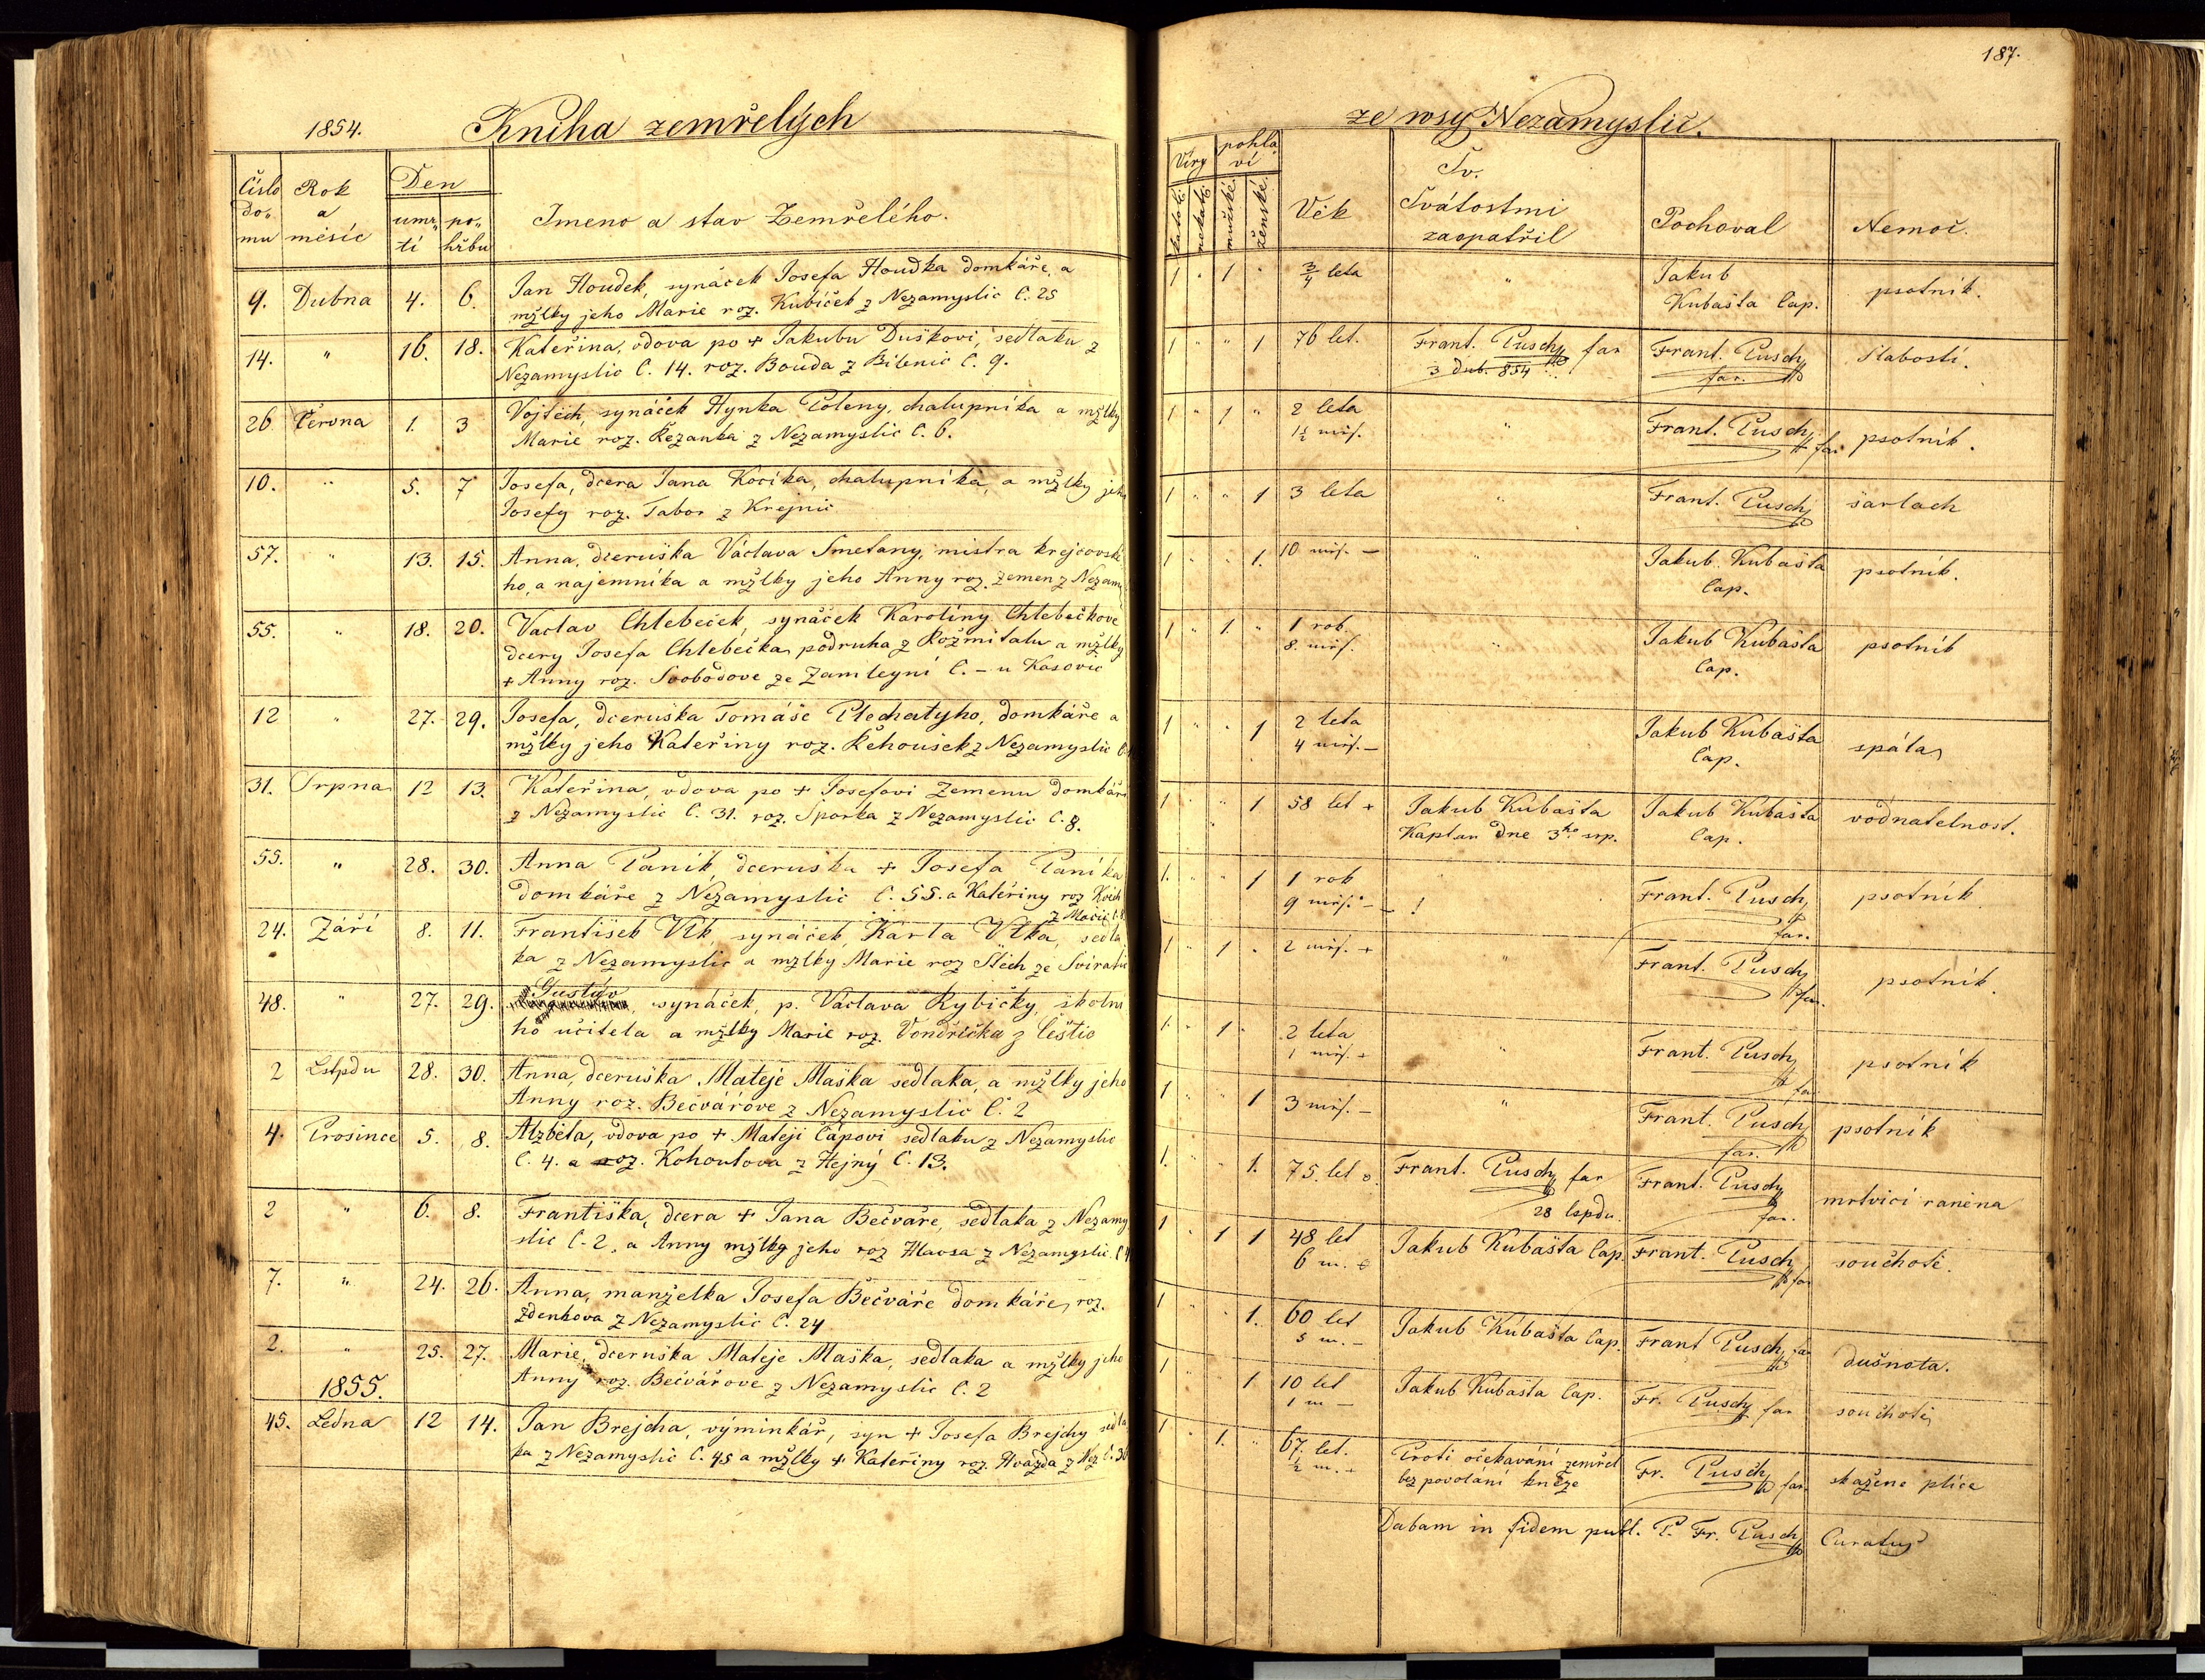 187.
1854. Kniha zemřelých
ze wsy Nezamyslic.
Číslo domu
Rok a měsíc
Den
umrtí
pohřbu
Jmeno a stav Zemřelého.
Víry
pohlaví
katolí.
nekatl.
mužské.
ženské.
Věk
Sv.
Svátostmi
zaopatřil
Pochoval
Nemoc.
9. Dubna 4. 6. Jan Houdek, synáček Josefa Houdka domkáře, a
mžlky jeho Marie roz. Kubíček z Nezamyslic č. 25
1 " 1 " 3/4 leta " Jakub
Kubašta Cap. psotník.
14. " 16. 18. Kateřina, vdova po + Jakubu Duškovi, sedlaku z
Nezamyslic č. 14. roz. Bouda z Bilenic č. 9.
1 " " 1 76 let. Frant. Pusch far
3 dub. 854
Frant. Pusch
far. slabostí.
26. Června 1. 3 Vojtěch, synáček Hynka Poleny, chalupníka a mžlky
Marie roz. Řezanka z Nezamyslic č. 6.
1 " 1 " 2 leta
1½ měs. " Frant. Pusch far. psotník.
10. " 5. 7 Josefa, dcera Jana Kocíka, chalupníka, a mžlky jeho
Josefy roz. Tabor z Krejnic
1 " " 1 3 leta " Frant. Pusch šarlach
57. " 13. 15. Anna, dceruška Václava Smetany, mistra krejčovské-
ho, a najemníka a mžlky jeho Anny roz. Zemen z Nezam
1 " " 1. 10 měs. — " Jakub Kubašta
Cap. psotník.
55. " 18. 20. Vaclav Chlebeček, synáček Karoliny Chlebečkove
dcery Josefa Chlebečka, podruha z Rožmitalu a mžlky
+ Anny roz. Svobodove ze Zamlegní č. – u Kasovic
1 " 1. " 1 rok
8. měs. " Jakub Kubašta
Cap. psotník
12 " 27. 29. Josefa, dceruška Tomáše Plechatyho, domkáře a
mžlky jeho Kateřiny roz. Řehoušek z Nezamyslic č.
1 " " 1 2 leta
4 měs. — Jakub Kubašta
Cap. spála
31. Srpna 12 13. Kateřina, vdova po + Josefovi Zemenu domkáři
z Nezamyslic č. 31. roz. Sporka z Nezamyslic č. 8.
1 " " 1 58 let + Jakub Kubašta
Kaplan dne 3ho srp.
Jakub Kubašta
Cap. vodnatelnost.
55. " 28. 30. Anna Paník, dceruška + Josefa Paníka
domkáře z Nezamyslic č. 55. a Kateřiny roz
1. " " 1 1 rok
9 měs. — ! Frant. Pusch
far. psotník.
24. Září 8. 11. František Vlk, synáček, Karla Vlka, sedla
ka z Nezamyslic a mžlky Marie roz Štěch ze Sviratic
1 " 1 . 2 měs. + " Frant. Pusch
far. psotník.
48. " 27. 29. Gustáv, synáček, p. Václava Rybičky, školní
ho učitela a mžlky Marie roz. Vondrička z Čestic
1. " 1 . 2 leta
1 měs. + " Frant. Pusch
far psotník
2 Lstpdu 28. 30. Anna, dceruška Mateje Maška sedlaka, a mžlky jeho
Anny roz. Bečvářove z Nezamyslic č. 2
1 " " 1 3 měs. — " Frant. Pusch
far. psotník
4. Prosince 5. 8. Alzběta, vdova po + Mateji Čápovi sedlaku z Nezamyslic
č. 4. a roz. Kohoutova z Hejný č. 13.
1. " 1. 75. let Frant. Pusch far
28 lspdu.
Frant. Pusch
far. mrtvicí raněna
2 " 6. 8. Františka, dcera + Jana Bečváře, sedlaka z Nezamy
slic č. 2., a Anny mžlky jeho roz Hlavsa z Nezamyslic. č
1 " 1 1 48 let
6 m. Jakub Kubašta Cap. Frant. Pusch far souchotě.
7. " 24. 26. Anna, manželka Josefa Bečváře domkáře, roz.
Zdenkova z Nezamyslic č. 24
1 " " 1. 60 let
5 m. — Jakub Kubašta Cap. Frant Pusch far dušnota.
2. " 25. 27. Marie, dceruška Mateje Maška, sedlaka a mžlky jeho
Anny roz. Bečvářove z Nezamyslic č. 2
1 " " 1 10 let
1 m — Jakub Kubašta Cap. Fr. Pusch far souchotě
1855.
45. Ledna 12 14. Jan Brejcha, výminkář, syn + Josefa Brejchy sedla
ka z Nezamyslic č. 45 a mžlky + Kateřiny roz. Hvazda z Nez č. 30
1 " 1. " 67. let.
½ m. + Proti očekavání zemřel
bez povolání kněze
Fr. Pusch far. skažene plíce
Dabam in fidem publ. P. Fr. Pusch Curatus